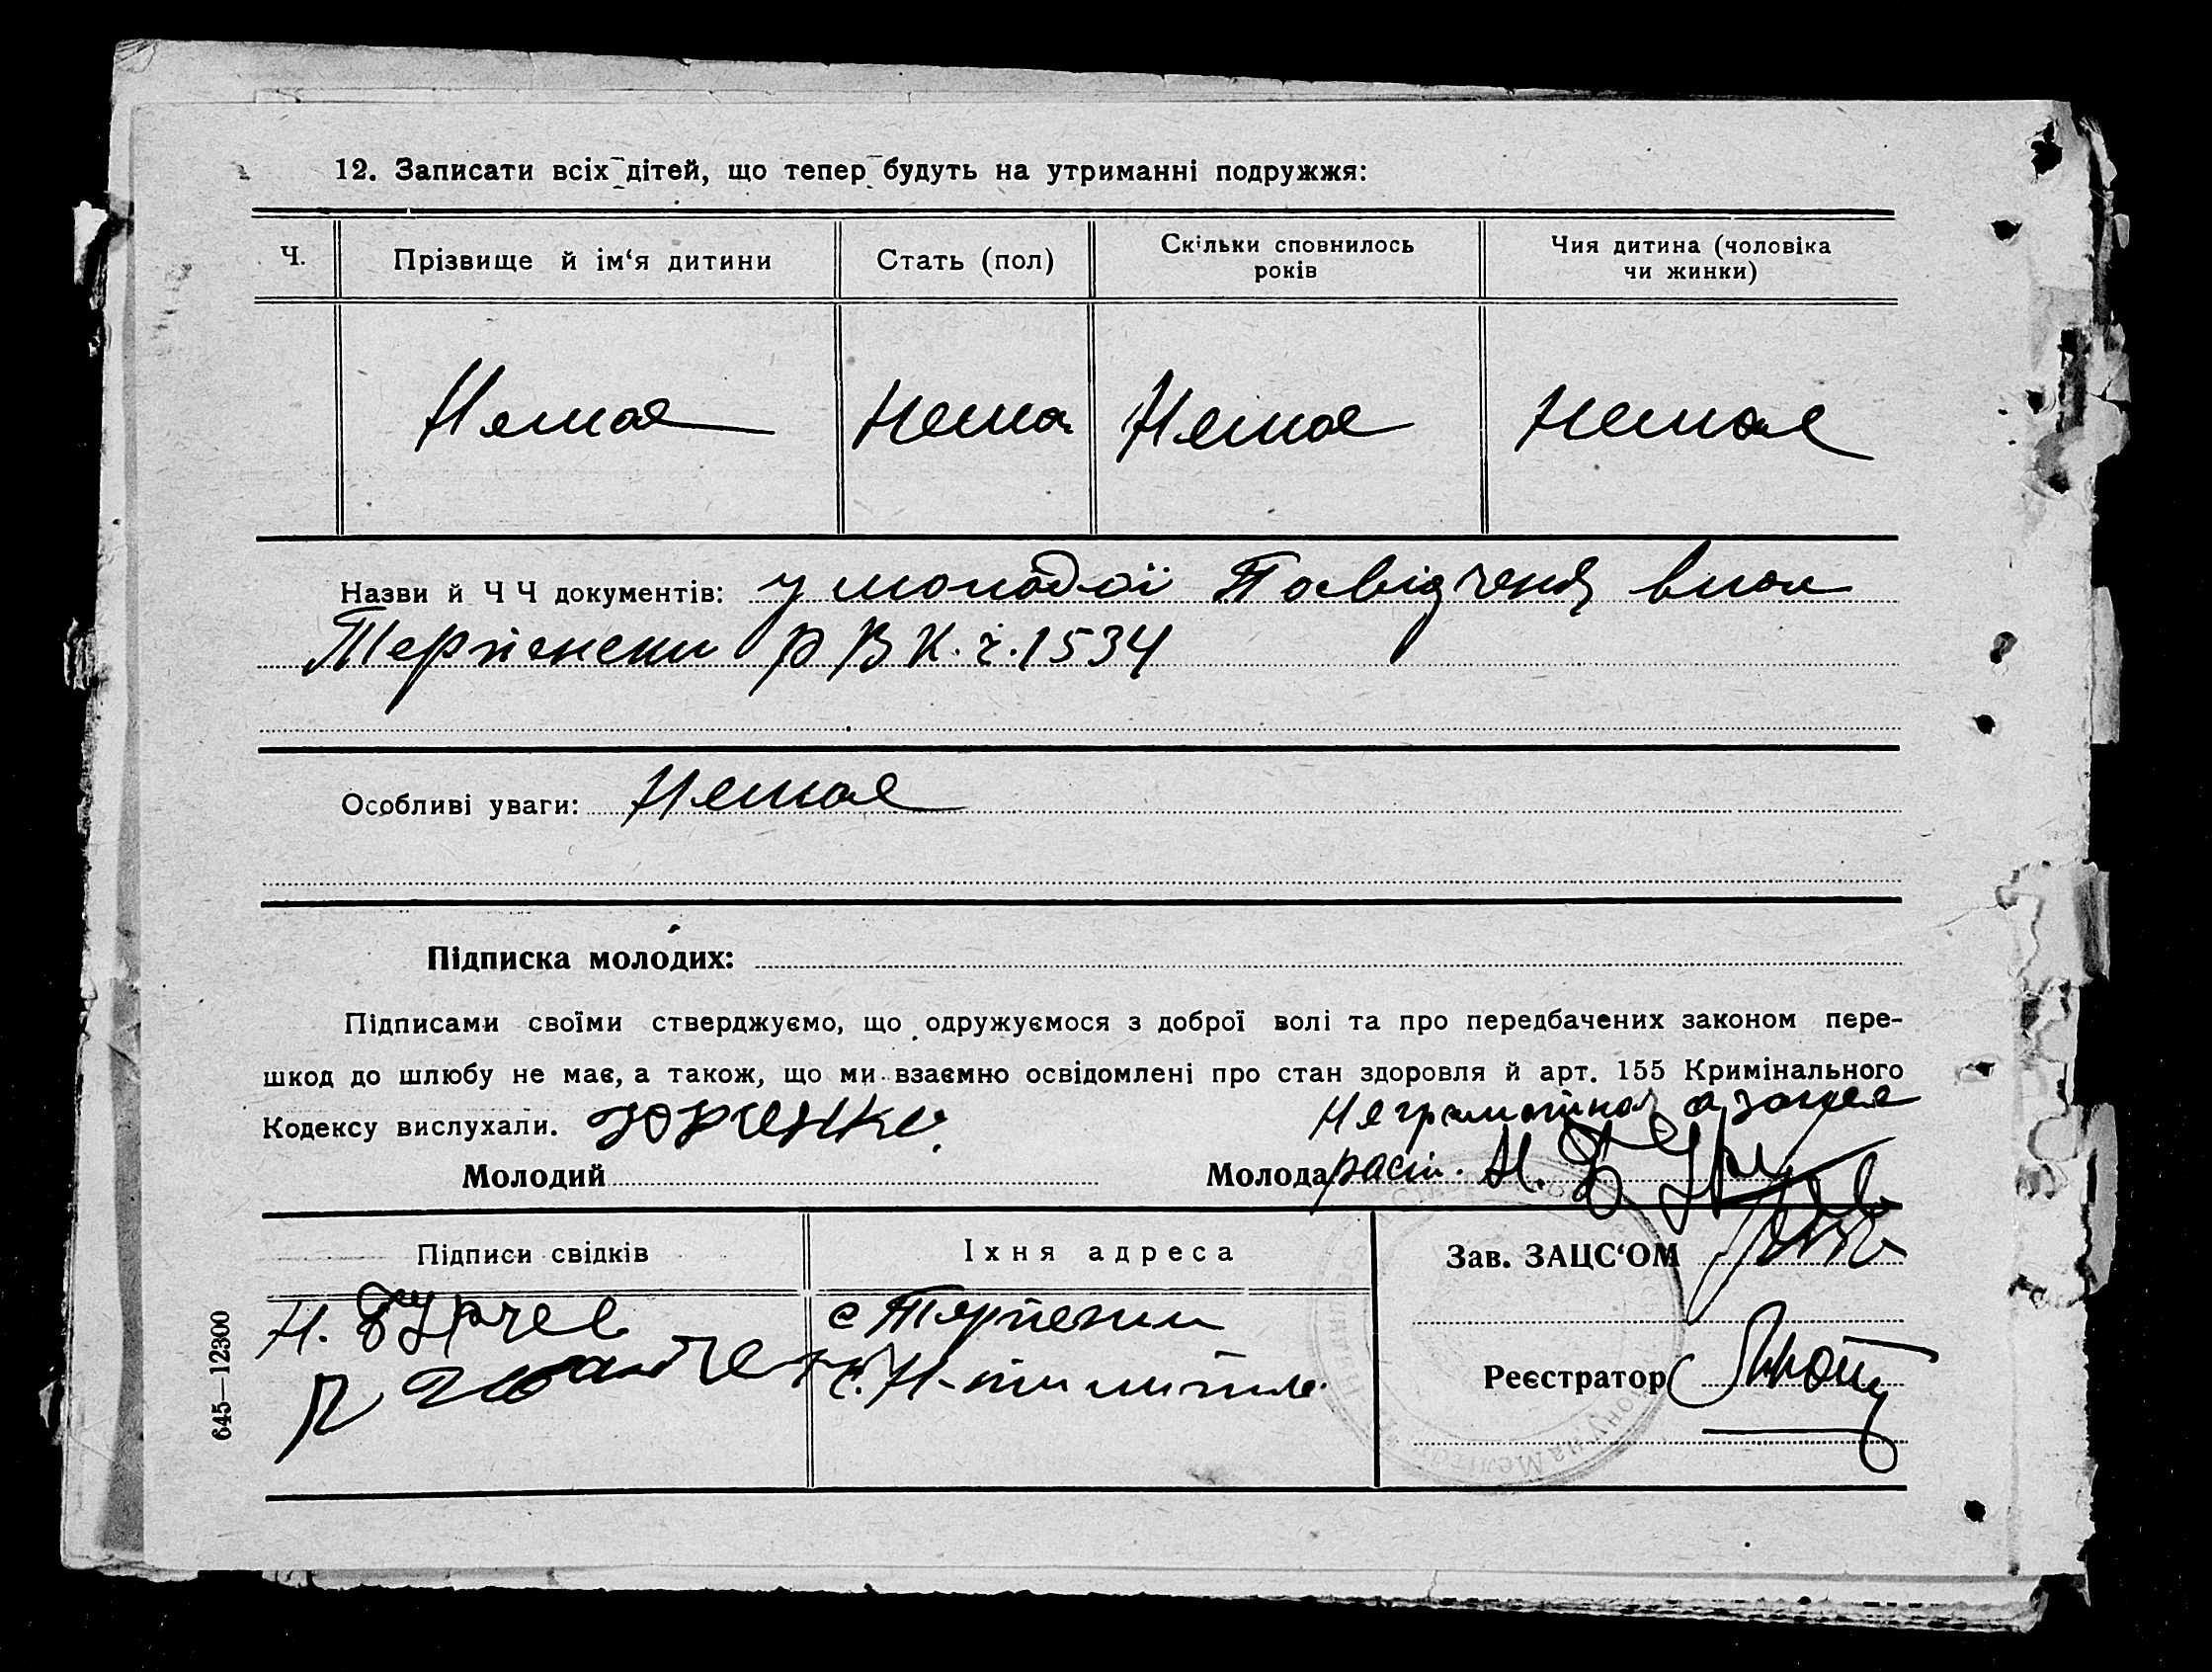 12. Записати всіх дітей, що тепер будуть на утриманні подружжя:
Ч. Прізвище й ім‘я дитини Стать (пол) Скільки сповнилось років Чия дитина (чоловіка чи жинки)
Немає Нема Немає Немає
Назви й Ч Ч документів: у молодої Посвідченя видан
Терпіненски РВК. ч. 1534
Особливі уваги: Немає
Підписка молодих:
Підписами своїми стверджуємо, що одружуємося з доброї волі та про передбачених законом пере-
шкод до шлюбу не має, а також, що ми взаємно освідомлені про стан здоровля й арт. 155 Кримінального
Кодексу вислухали. Юрченко Неграмотна а зонее
Молодий Молода расп. Н.
Підписи свідків Іхня адреса Зав. ЗАЦС‘ОМ
Н. Бурчев с Терпение
с. Н-
Реєстратор
645—12300